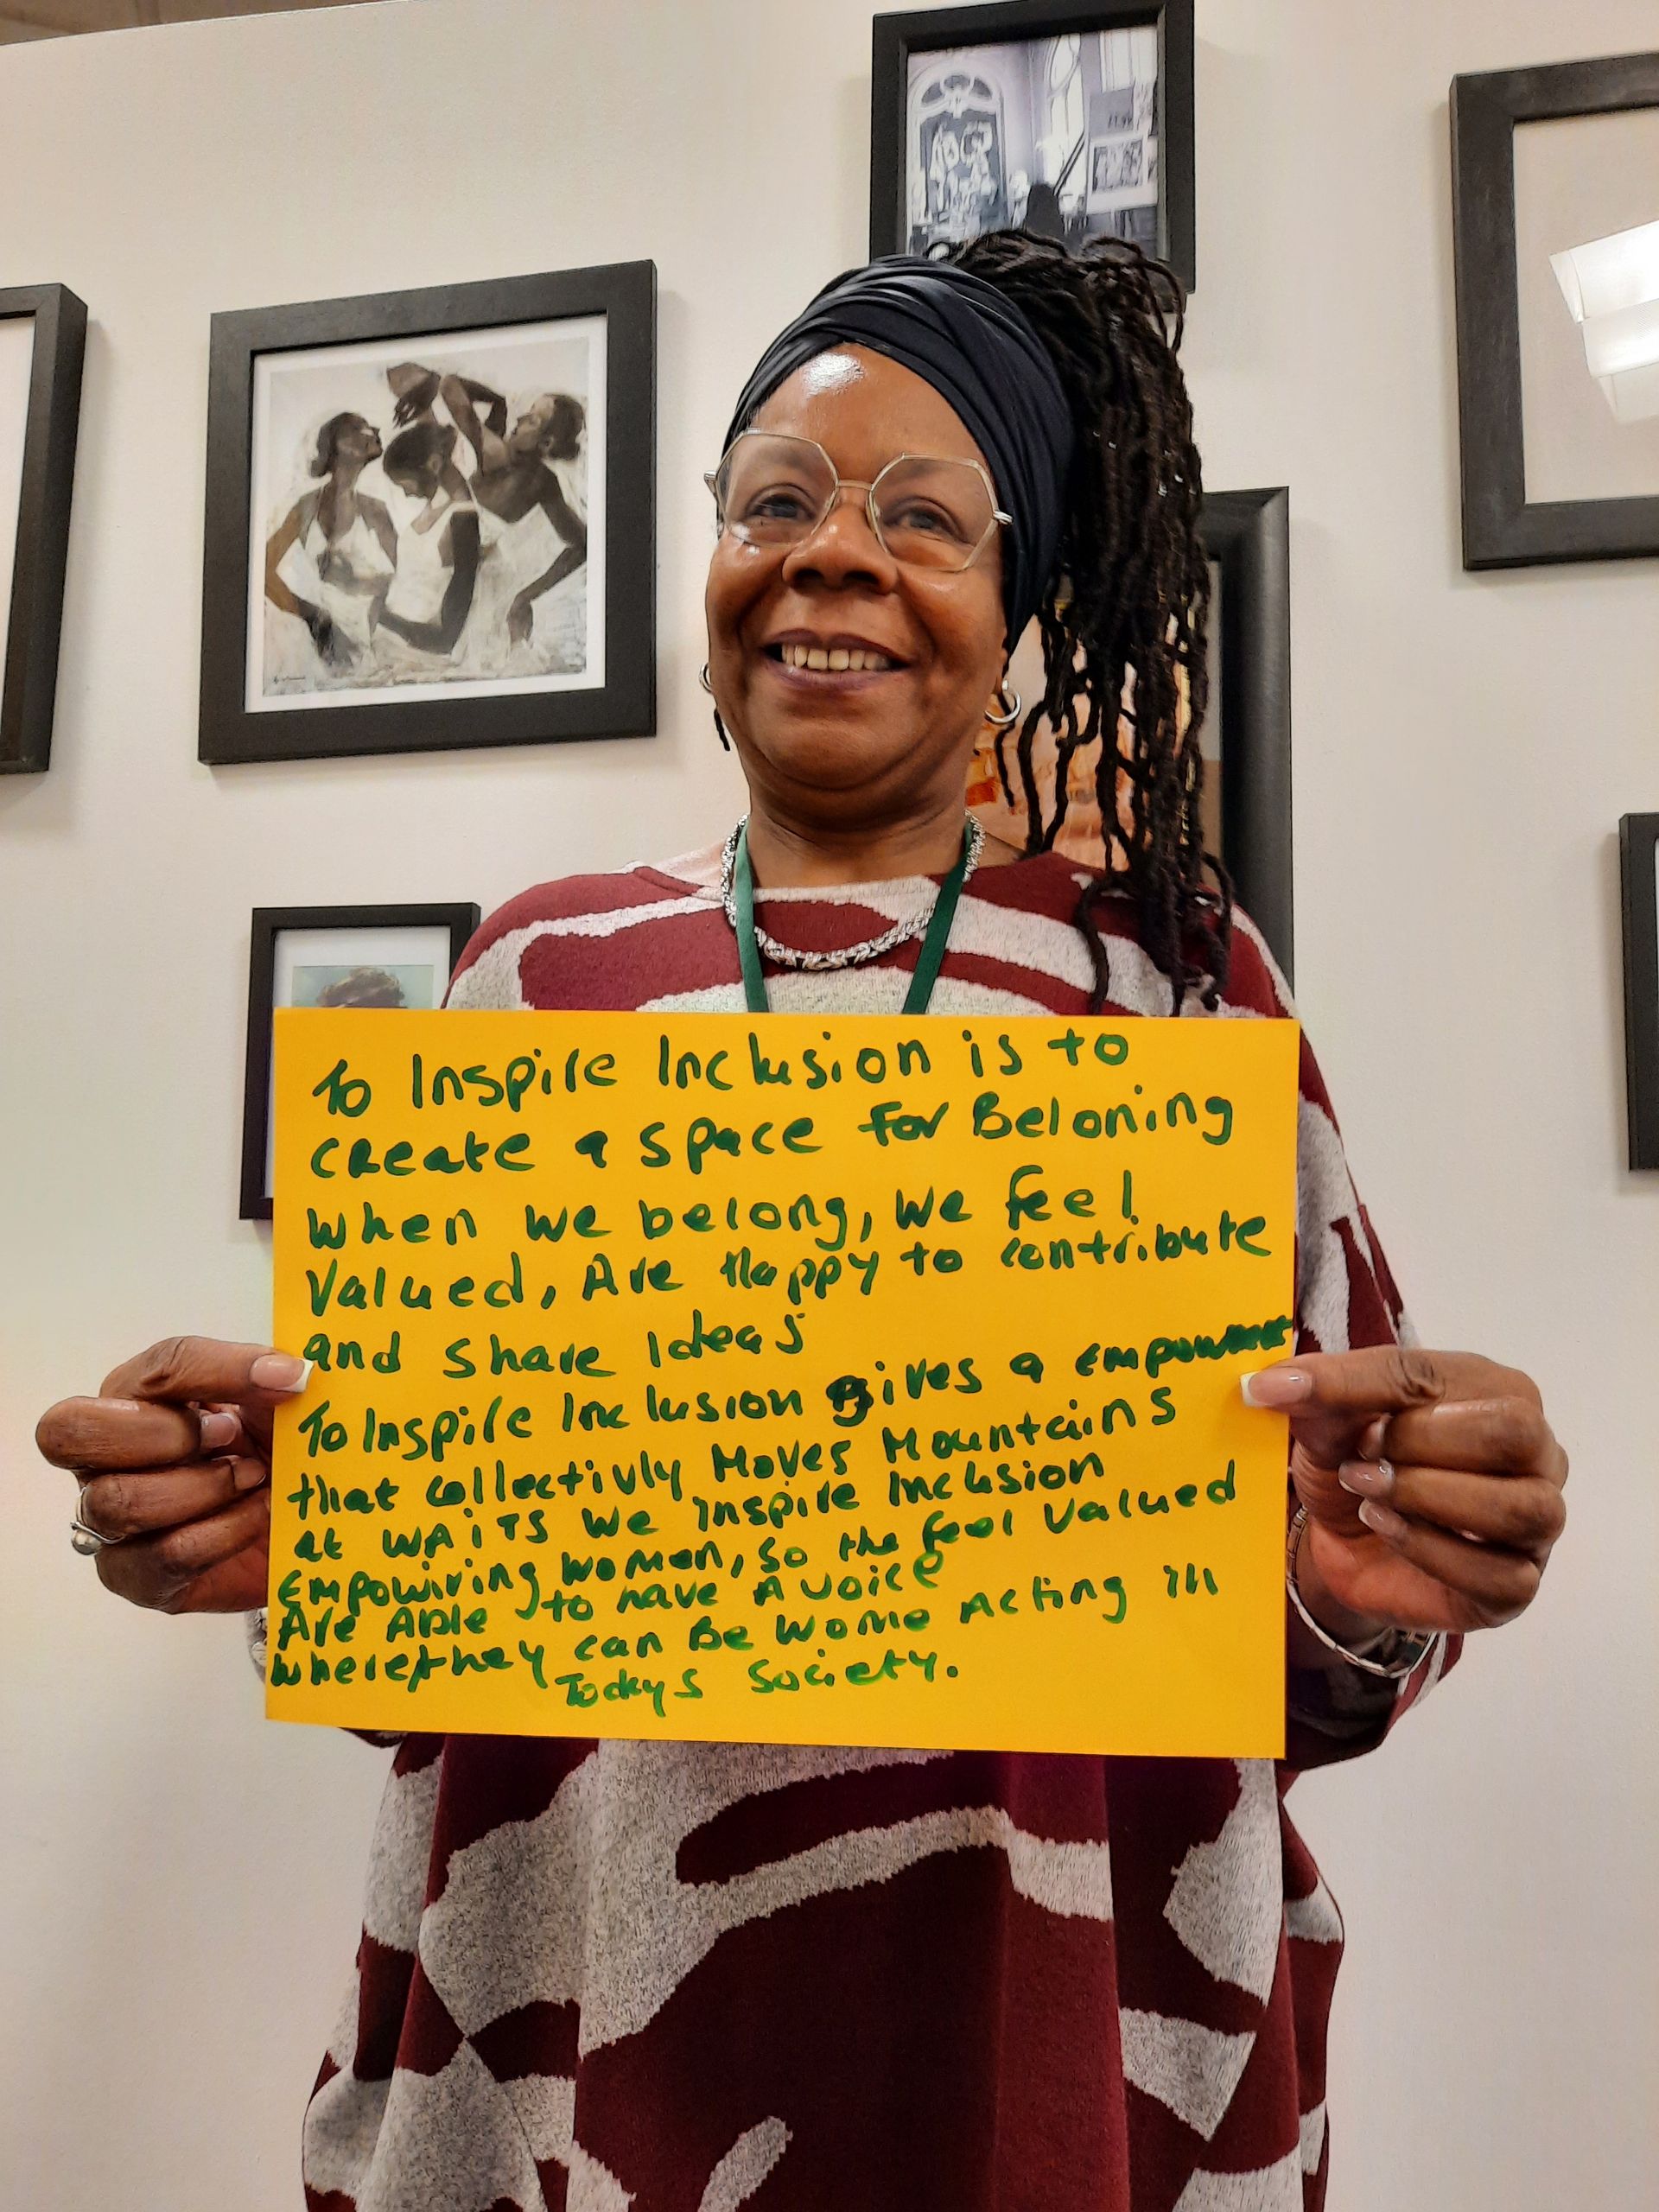 To Inspire Inclusion is to
create a space for Beloning
when we belong, we feel
Valued, Are Happy to contribute
and share Ideas
To Inspire Inclusion gives a empowerment
that collectivly Moves Mountains
at WAITS we inspire Inclusion
Empowiring women, so the feel Valued
Are Able to have A voice
where they can Be Wome Acting in
Todays Society.